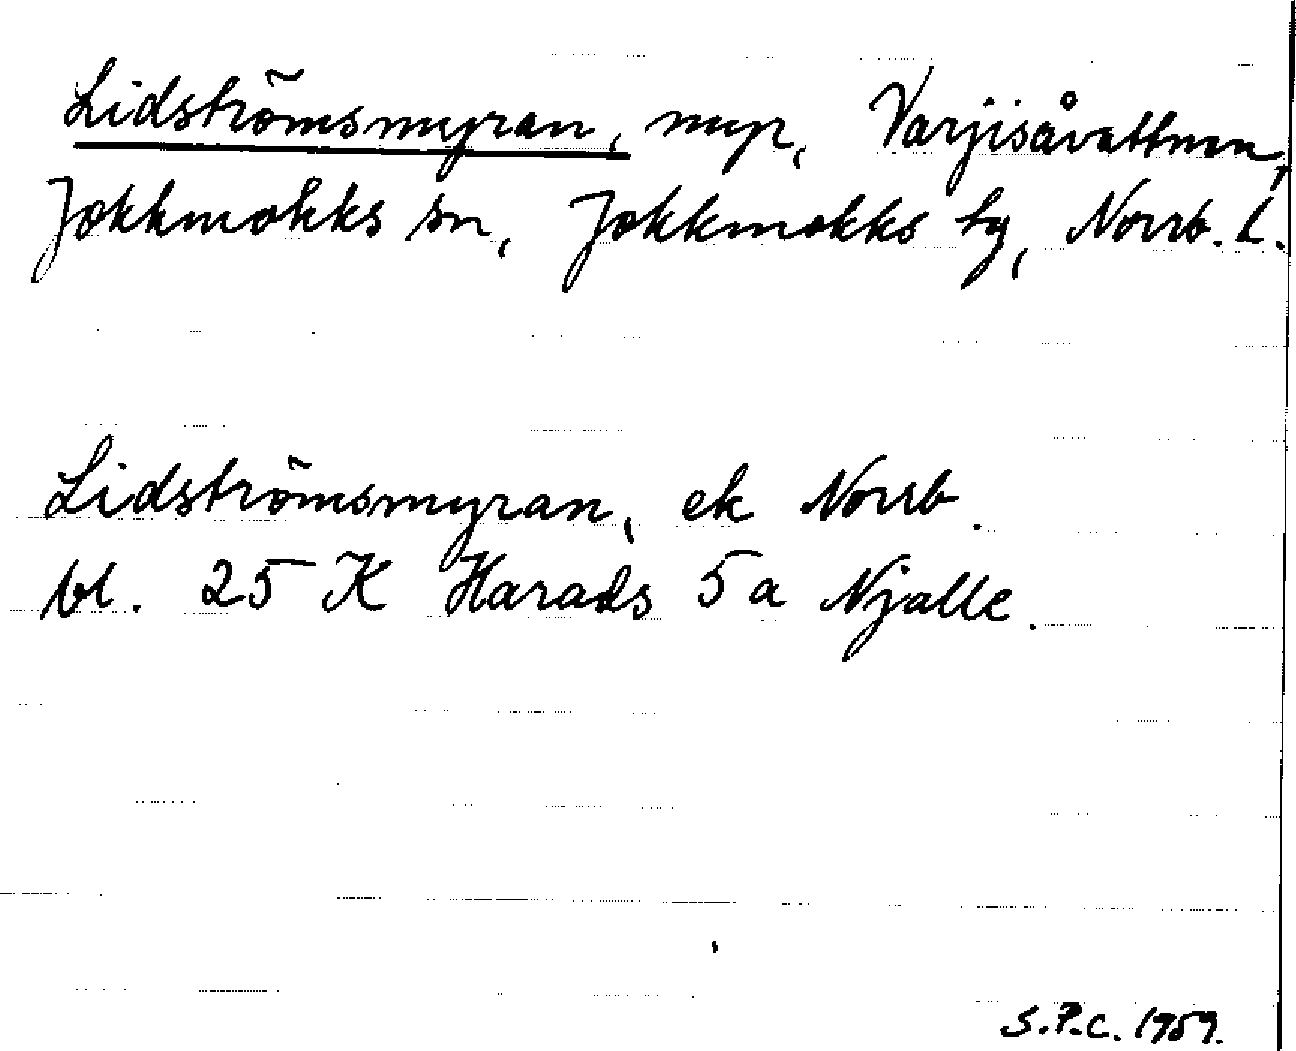 Lidströmsmyran, myr, Varjisåvattnen,
Jokkmokks sn, Jokkmokks ty, Norrb. L.
Lidströmsmyran, ek Norrb.
bl. 25 K Harads 5 a Njalle.
S.P.C. 1959.